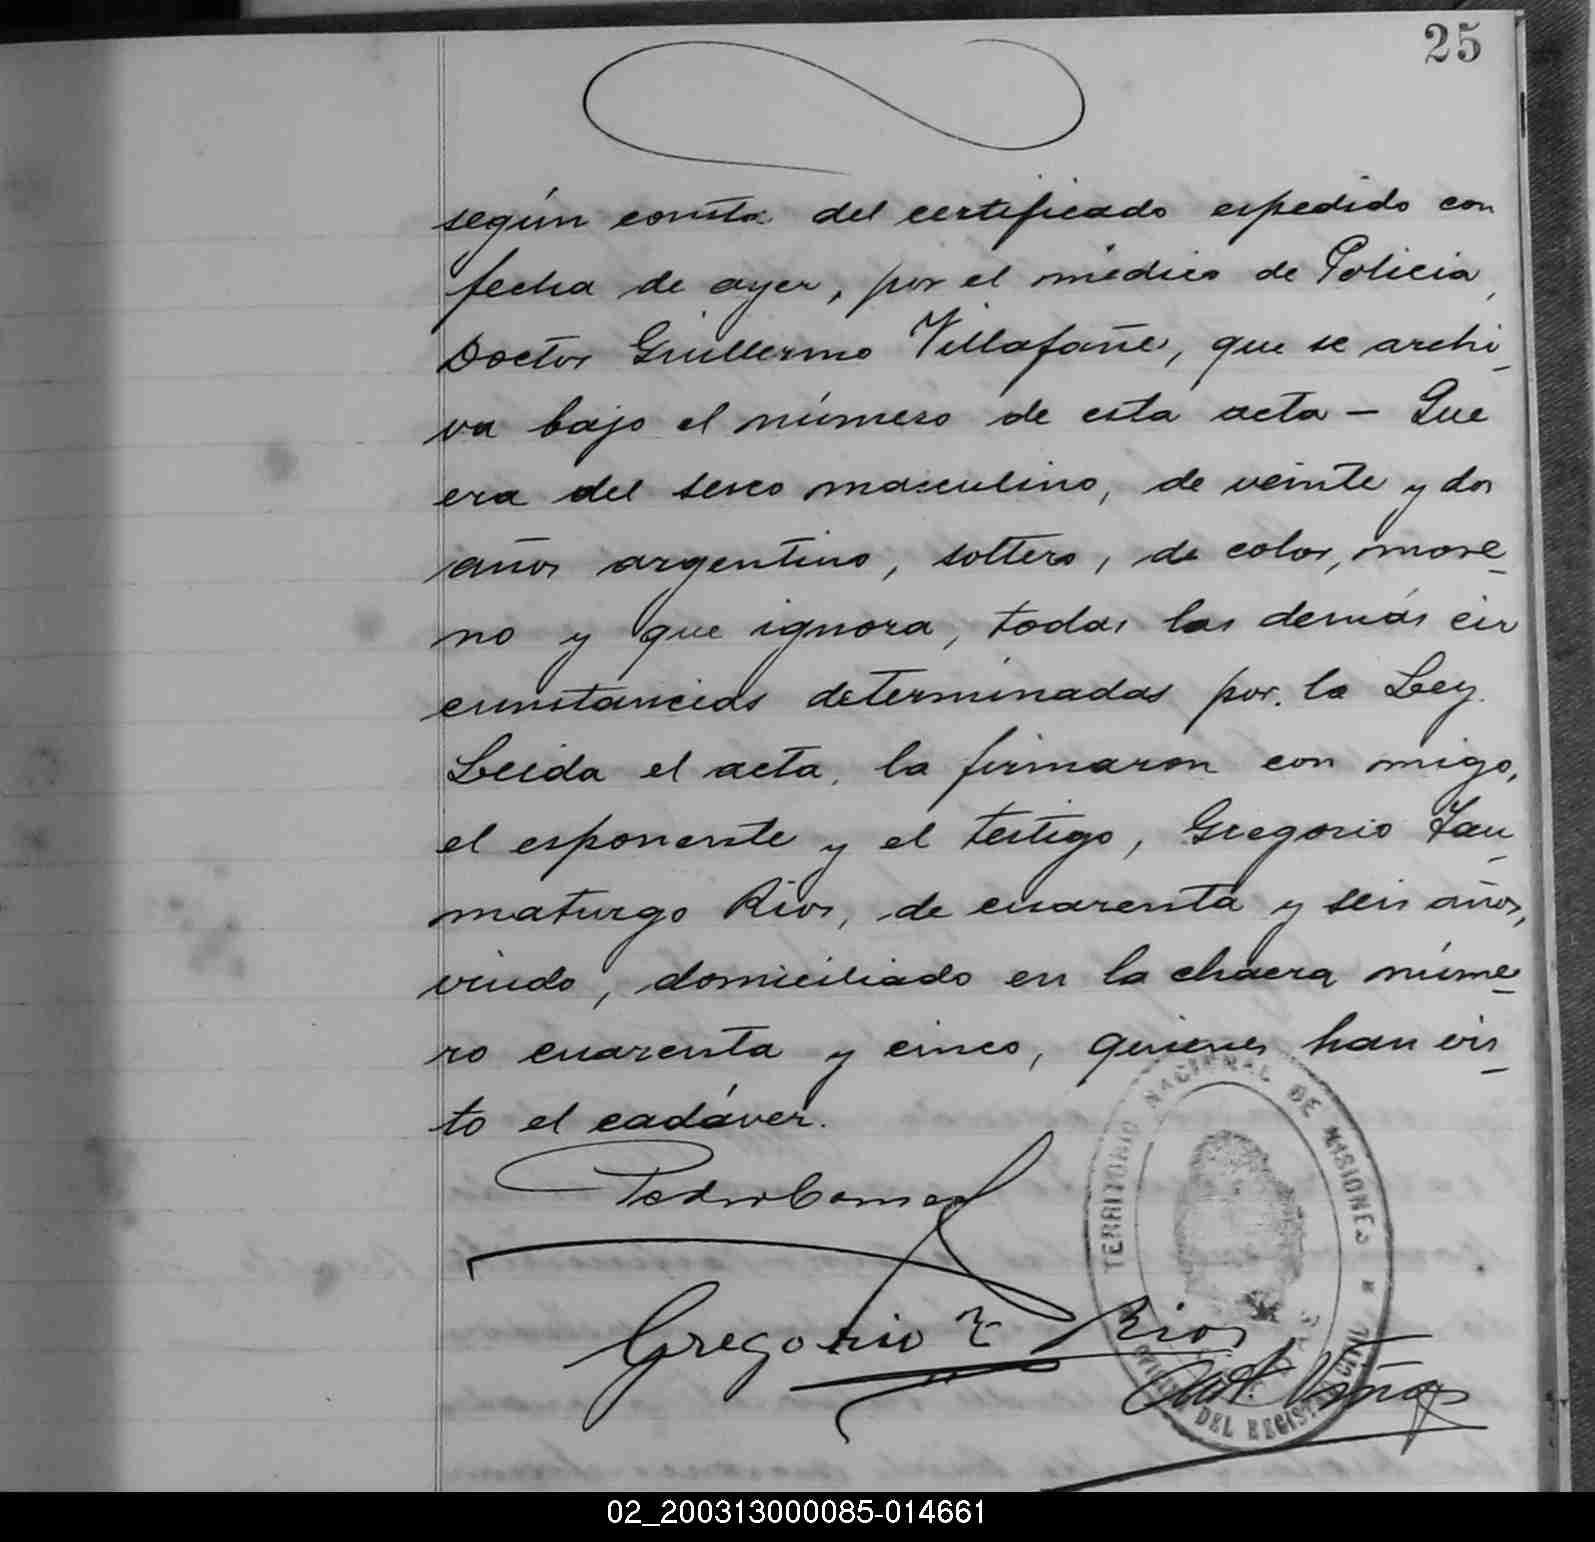 25
según consta del certificado espedido con
fecha de ayer, por el médico de Policia,
Doctor Guillermo Villafañe, que se archi-
va bajo el número de esta acta - Que
era del sexo masculino, de veinte y dos
años argentino, soltero, de color, more-
no y que ignora, todas las demás cir
cunstancias determinadas por la Ley.
Leida el acta, la firmaron con migo,
el esponente y el testigo, Gregorio Tau-
maturgo Rios, de cuarenta y seis años,
viudo, domiciliado en la chacra núme-
ro cuarenta y cinco, quienes han vis-
to el cadáver.
TERRITORIO NACIONAL DE MISIONES
DEL REGISTRO CIVIL
Pedro
Gregorio T. Rios
02_200313000085-014661